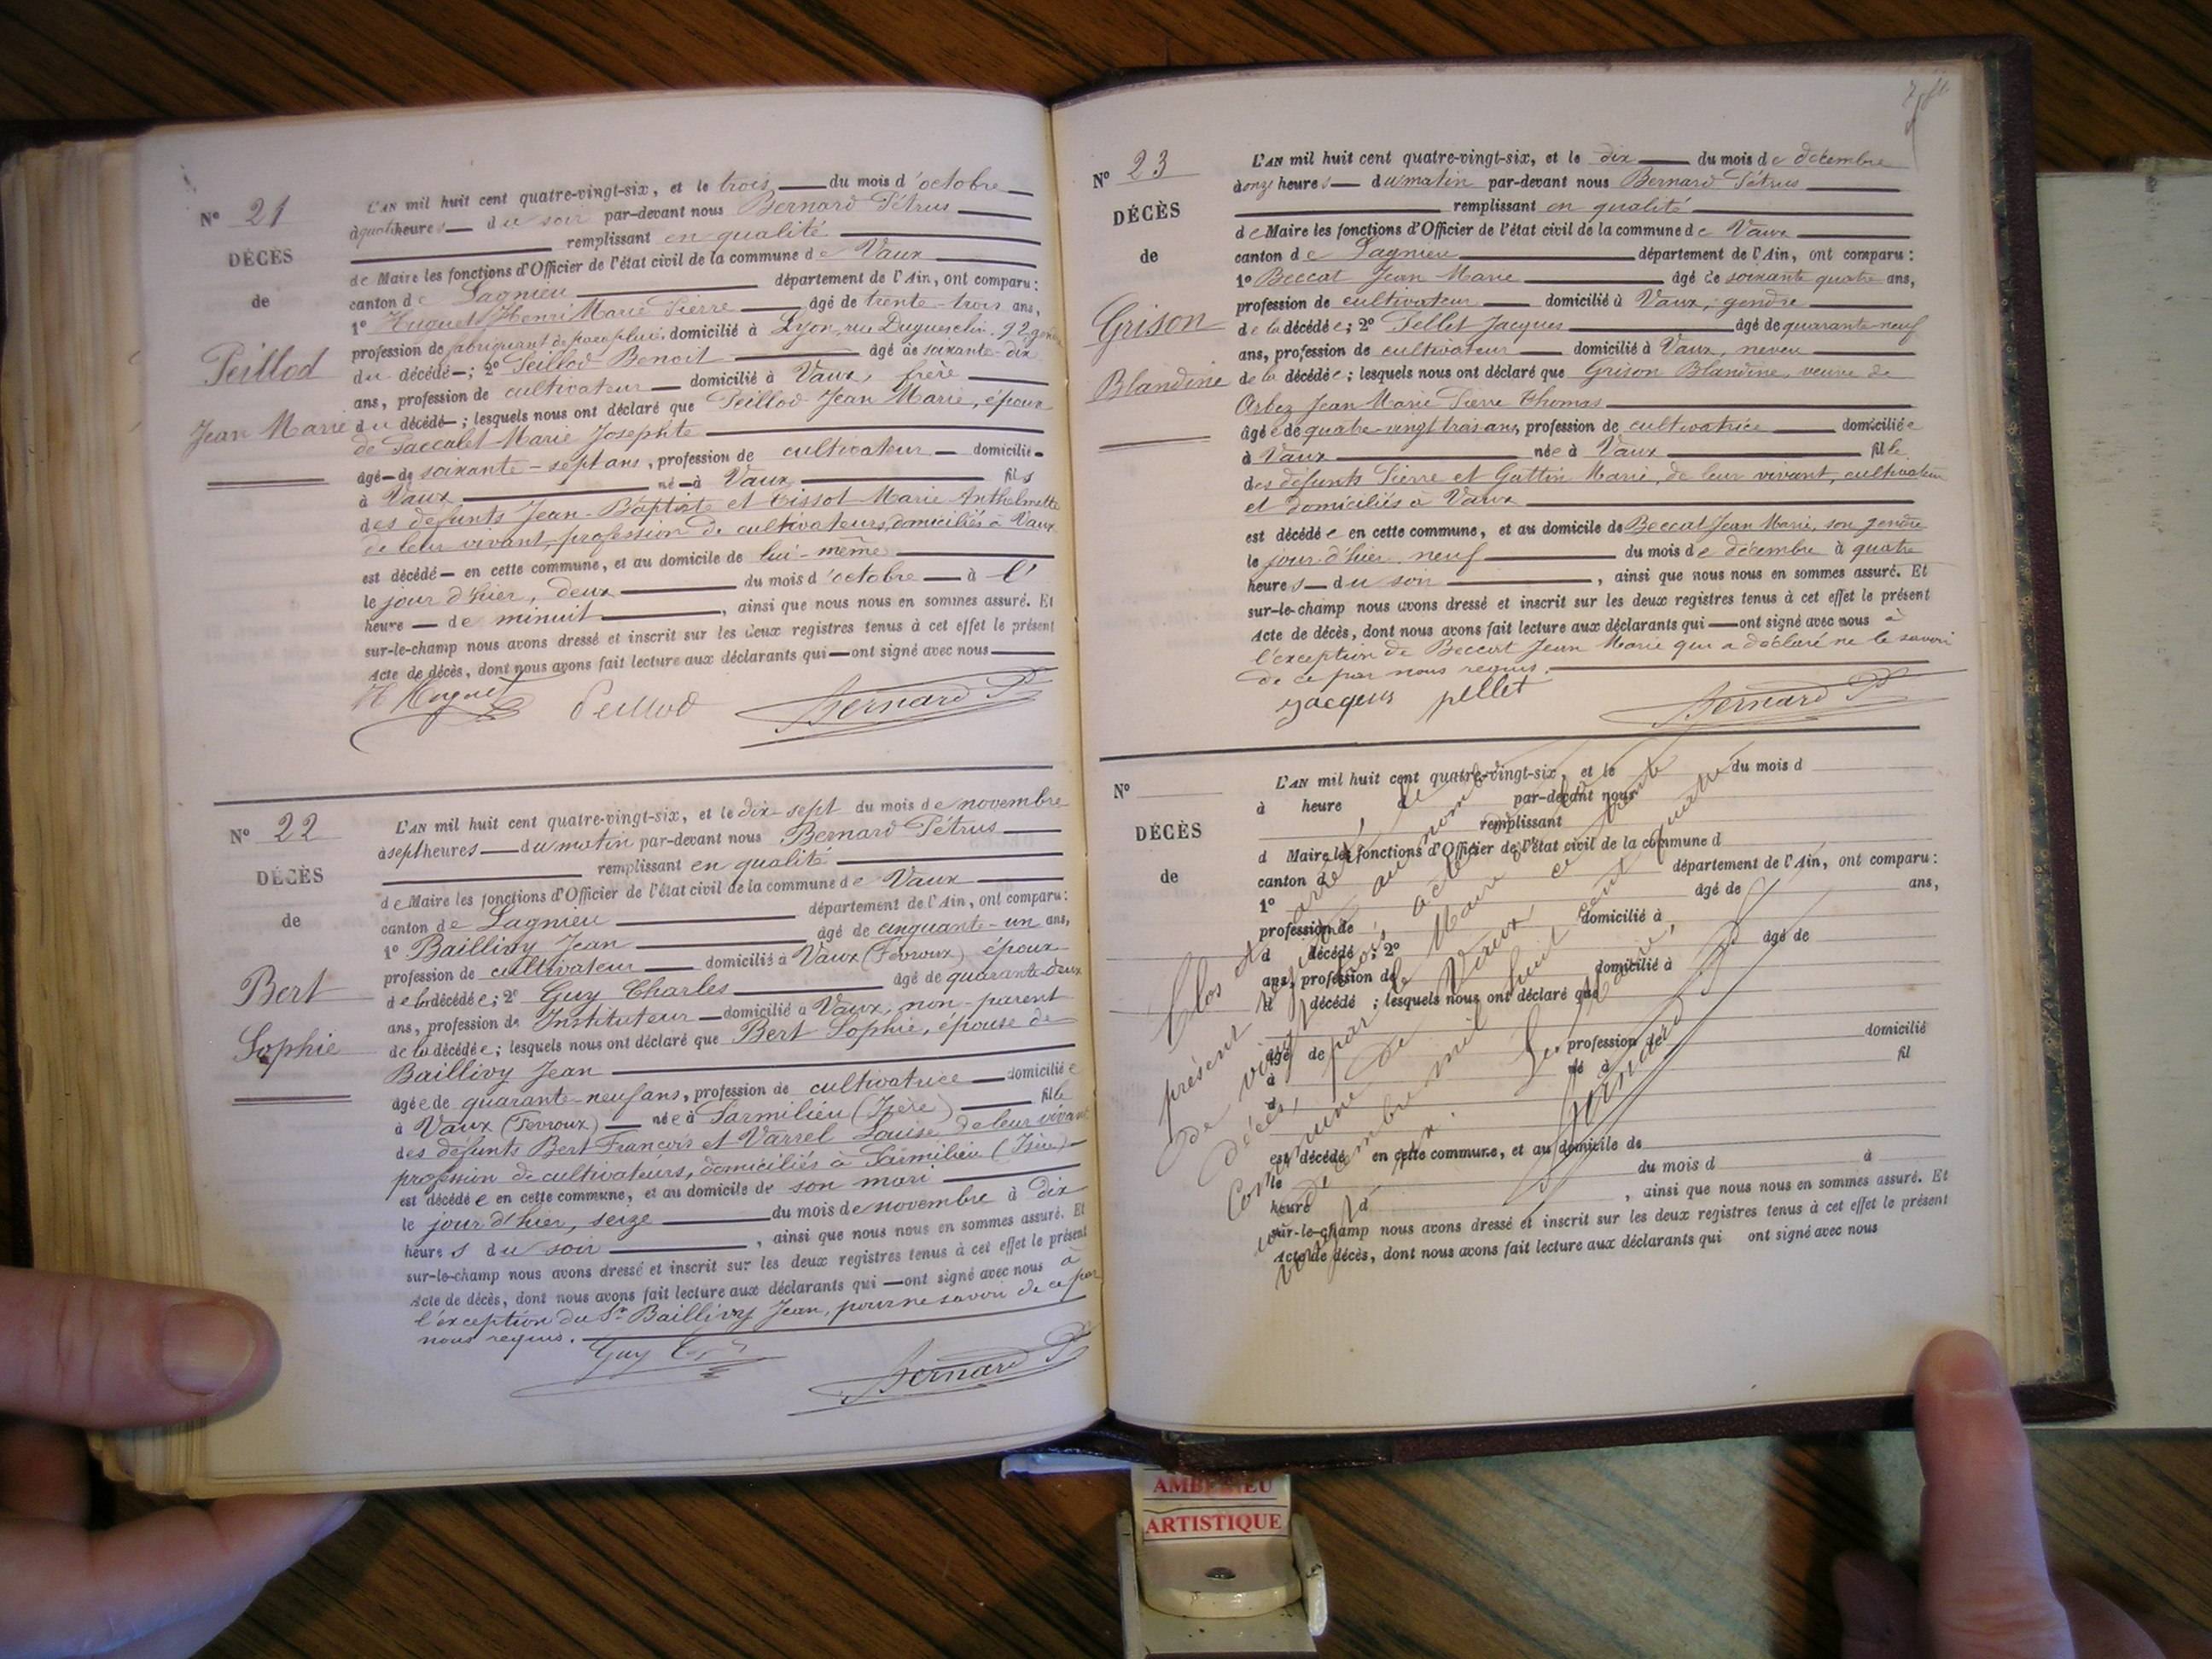 N° 21
DÉCÈS
de
Peillod
Jean Marie
L'AN mil huit cent quatre-vingt-six, et le trois du mois d'octobre
à quatre heures du soir par-devant nous Bernard Pétrus
remplissant en qualité
de Maire les fonctions d'Officier de l'état civil de la commune de Vaux
canton de Lagnieu département de l'Ain, ont comparu :
1° Huguet Henri Marie Pierre âgé de trente-trois ans,
profession de fabriquant de parapluie, domicilié à Lyon, rue Duguesclin, 92, gendre
du décédé ; 2° Peillod Benoit âgé de soixante-dix
ans, profession de cultivateur domicilié à Vaux, frère
du décédé ; lesquels nous ont déclaré que Peillod Jean Marie, époux
de Paccalet Marie Josephte
âgé de soixante-sept ans, profession de cultivateur domicilié
à Vaux né à Vaux fils
des défunts Jean-Baptiste et Tissot Marie Anthelmette
de leur vivant, profession de cultivateurs, domiciliés à Vaux
est décédé en cette commune, et au domicile de lui-même
le jour d'hier, deux du mois d'octobre à l'
heure de minuit, ainsi que nous nous en sommes assuré. Et
sur-le-champ nous avons dressé et inscrit sur les deux registres tenus à cet effet le présent
Acte de décès, dont nous avons fait lecture aux déclarants qui ont signé avec nous
H Huguet Peillod Bernard P.
N° 22
DÉCÈS
de
Bert
Sophie
L'AN mil huit cent quatre-vingt-six, et le dix-sept du mois de novembre
à sept heures du matin par-devant nous Bernard Pétrus
remplissant en qualité
de Maire les fonctions d'Officier de l'état civil de la commune de Vaux
canton de Lagnieu département de l'Ain, ont comparu :
1° Baillivy Jean âgé de cinquante-un ans,
profession de cultivateur domicilié à Vaux (Févroux) époux
de la décédée ; 2° Guy Charles âgé de quarante-deux
ans, profession de Instituteur domicilié à Vaux, non-parent
de la décédée ; lesquels nous ont déclaré que Bert Sophie, épouse de
Baillivy Jean
âgée de quarante-neuf ans, profession de cultivatrice domiciliée
à Vaux (Févroux) née à Parmilieu (Isère) fille
des défunts Bert François et Varrel Louise, de leur vivant
profession de cultivateurs, domiciliés à Parmilieu (Isère)
est décédée en cette commune, et au domicile de son mari
le jour d'hier, seize du mois de novembre à dix
heures du soir, ainsi que nous nous en sommes assuré. Et
sur-le-champ nous avons dressé et inscrit sur les deux registres tenus à cet effet le présent
Acte de décès, dont nous avons fait lecture aux déclarants qui ont signé avec nous à
l'exception du Sr Baillivy Jean, pour ne savoir de ce par
nous requis.
Guy Bernard P.
N° 23
DÉCÈS
de
Grison
Blandine
L'AN mil huit cent quatre-vingt-six, et le dix du mois de décembre
à onze heures du matin par-devant nous Bernard Pétrus
remplissant en qualité
de Maire les fonctions d'Officier de l'état civil de la commune de Vaux
canton de Lagnieu département de l'Ain, ont comparu :
1° Beccat Jean Marie âgé de soixante quatre ans,
profession de cultivateur domicilié à Vaux, gendre
de la décédée ; 2° Pellet Jacques âgé de quarante-neuf
ans, profession de cultivateur domicilié à Vaux, neveu
de la décédée ; lesquels nous ont déclaré que Grison Blandine, veuve de
Arbez Jean Marie Pierre Thomas
âgée de quatre-vingt trois ans, profession de cultivatrice domiciliée
à Vaux née à Vaux fille
des défunts Pierre et Guttin Marie, de leur vivant, cultivateurs
et domiciliés à Vaux
est décédée en cette commune, et au domicile de Beccat Jean Marie, son gendre
le jour d'hier neuf du mois de décembre à quatre
heures du soir, ainsi que nous nous en sommes assuré. Et
sur-le-champ nous avons dressé et inscrit sur les deux registres tenus à cet effet le présent
Acte de décès, dont nous avons fait lecture aux déclarants qui ont signé avec nous à
l'exception de Beccat Jean Marie qui a déclaré ne le savoir
de ce par nous requis.
jacques pellet Bernard P.
N°
DÉCÈS
de
L'AN mil huit cent quatre-vingt-six, et le du mois d
à heure d par-devant nous
remplissant
d Maire les fonctions d'Officier de l'état civil de la commune d
canton d département de l'Ain, ont comparu :
1° âgé de ans,
profession de domicilié à
d décédé ; 2° âgé de
ans, profession de domicilié à
d décédé ; lesquels nous ont déclaré que
âgé de profession de domicilié
à né à fil
d
est décédé en cette commune, et au domicile de
le du mois d à
heure d, ainsi que nous nous en sommes assuré. Et
sur-le-champ nous avons dressé et inscrit sur les deux registres tenus à cet effet le présent
Acte de décès, dont nous avons fait lecture aux déclarants qui ont signé avec nous
Clos et arrêté, le
présent registre au nombre
de vingt trois actes de
décès, par le Maire de la
Commune de Vaux, ce trente
un décembre mil huit cent quatre
vingt six.
Le Maire,
Bernard P.
AMBERIEU
ARTISTIQUE